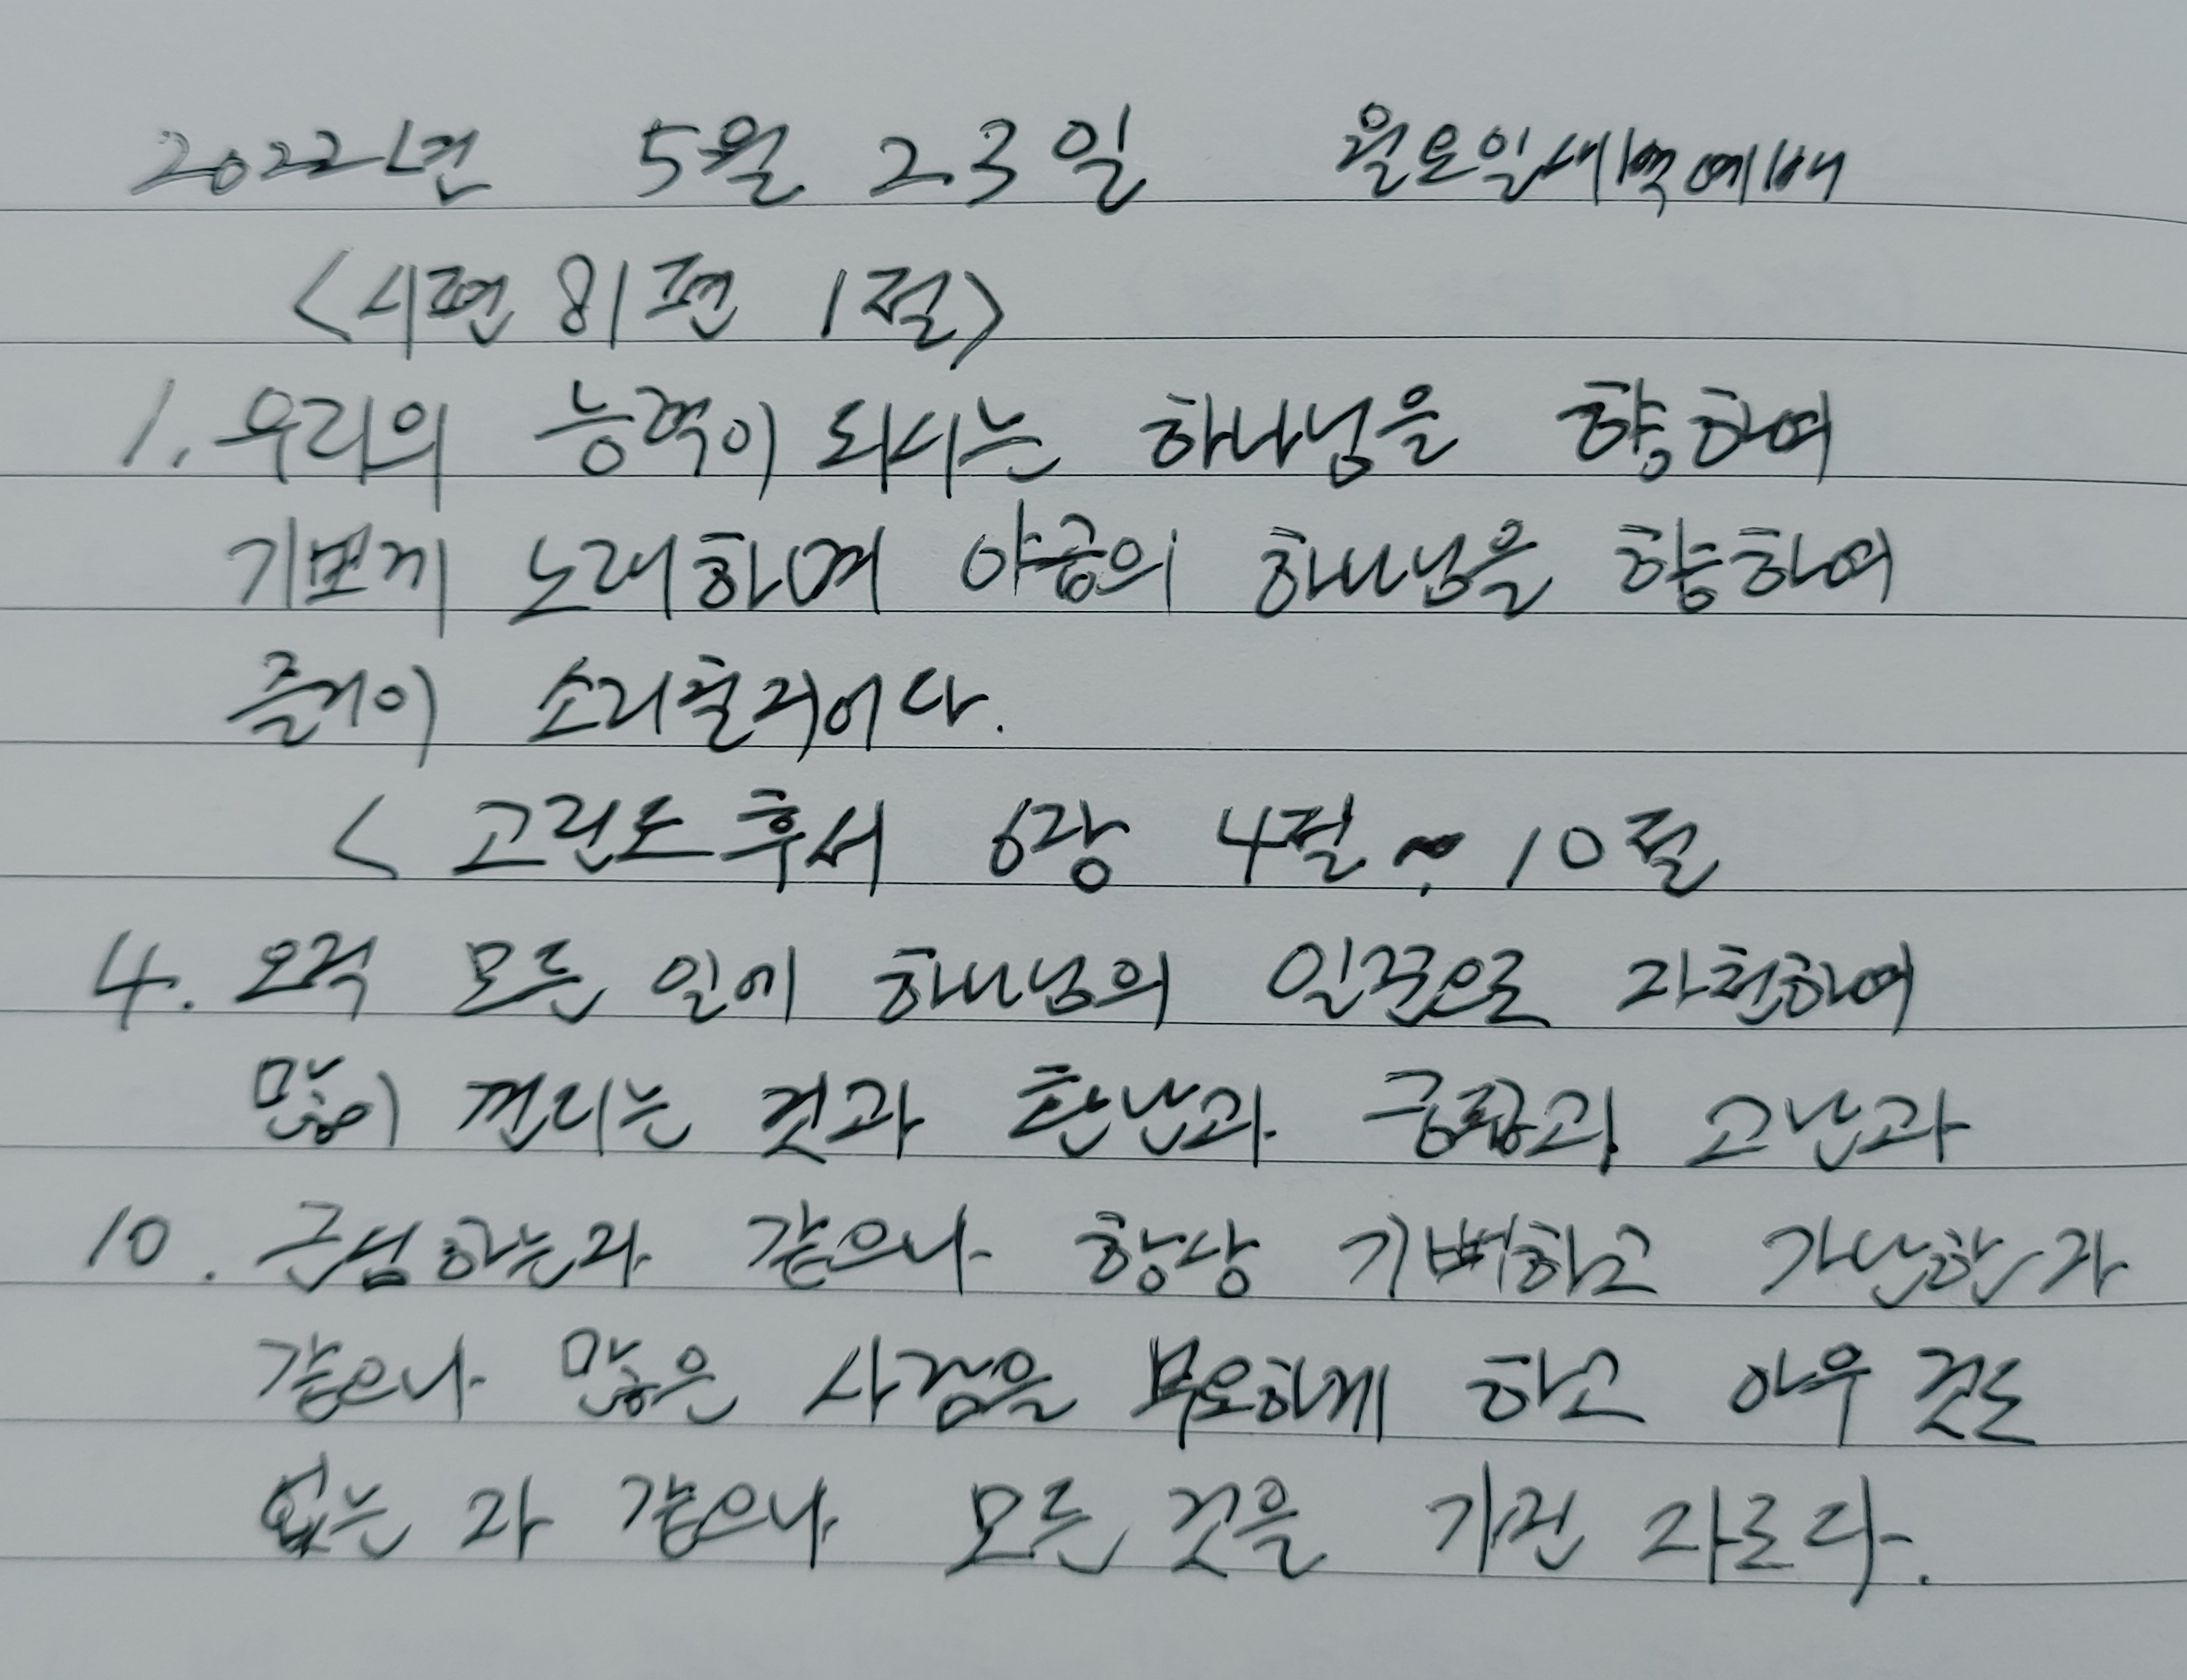 2022년 5월 23일 월요일새벽예배
<시편 81편 1절>
1. 우리의 능력이 되시는 하나님을 향하여
기쁘게 노래하며 야곱의 하나님을 향하여
즐거이 소리칠지어다.
< 고린도후서 6장 4절~10절
4. 오직 모든 일에 하나님의 일꾼으로 자천하여
많이 견디는 것과 환난과 궁핍과 고난과
10. 근심하는자 같으나 항상 기뻐하고 가난한 자
같으나 많은 사람을 부요하게 하고 아무 것도
없는 자 같으나 모든 것을 가진 자로다.